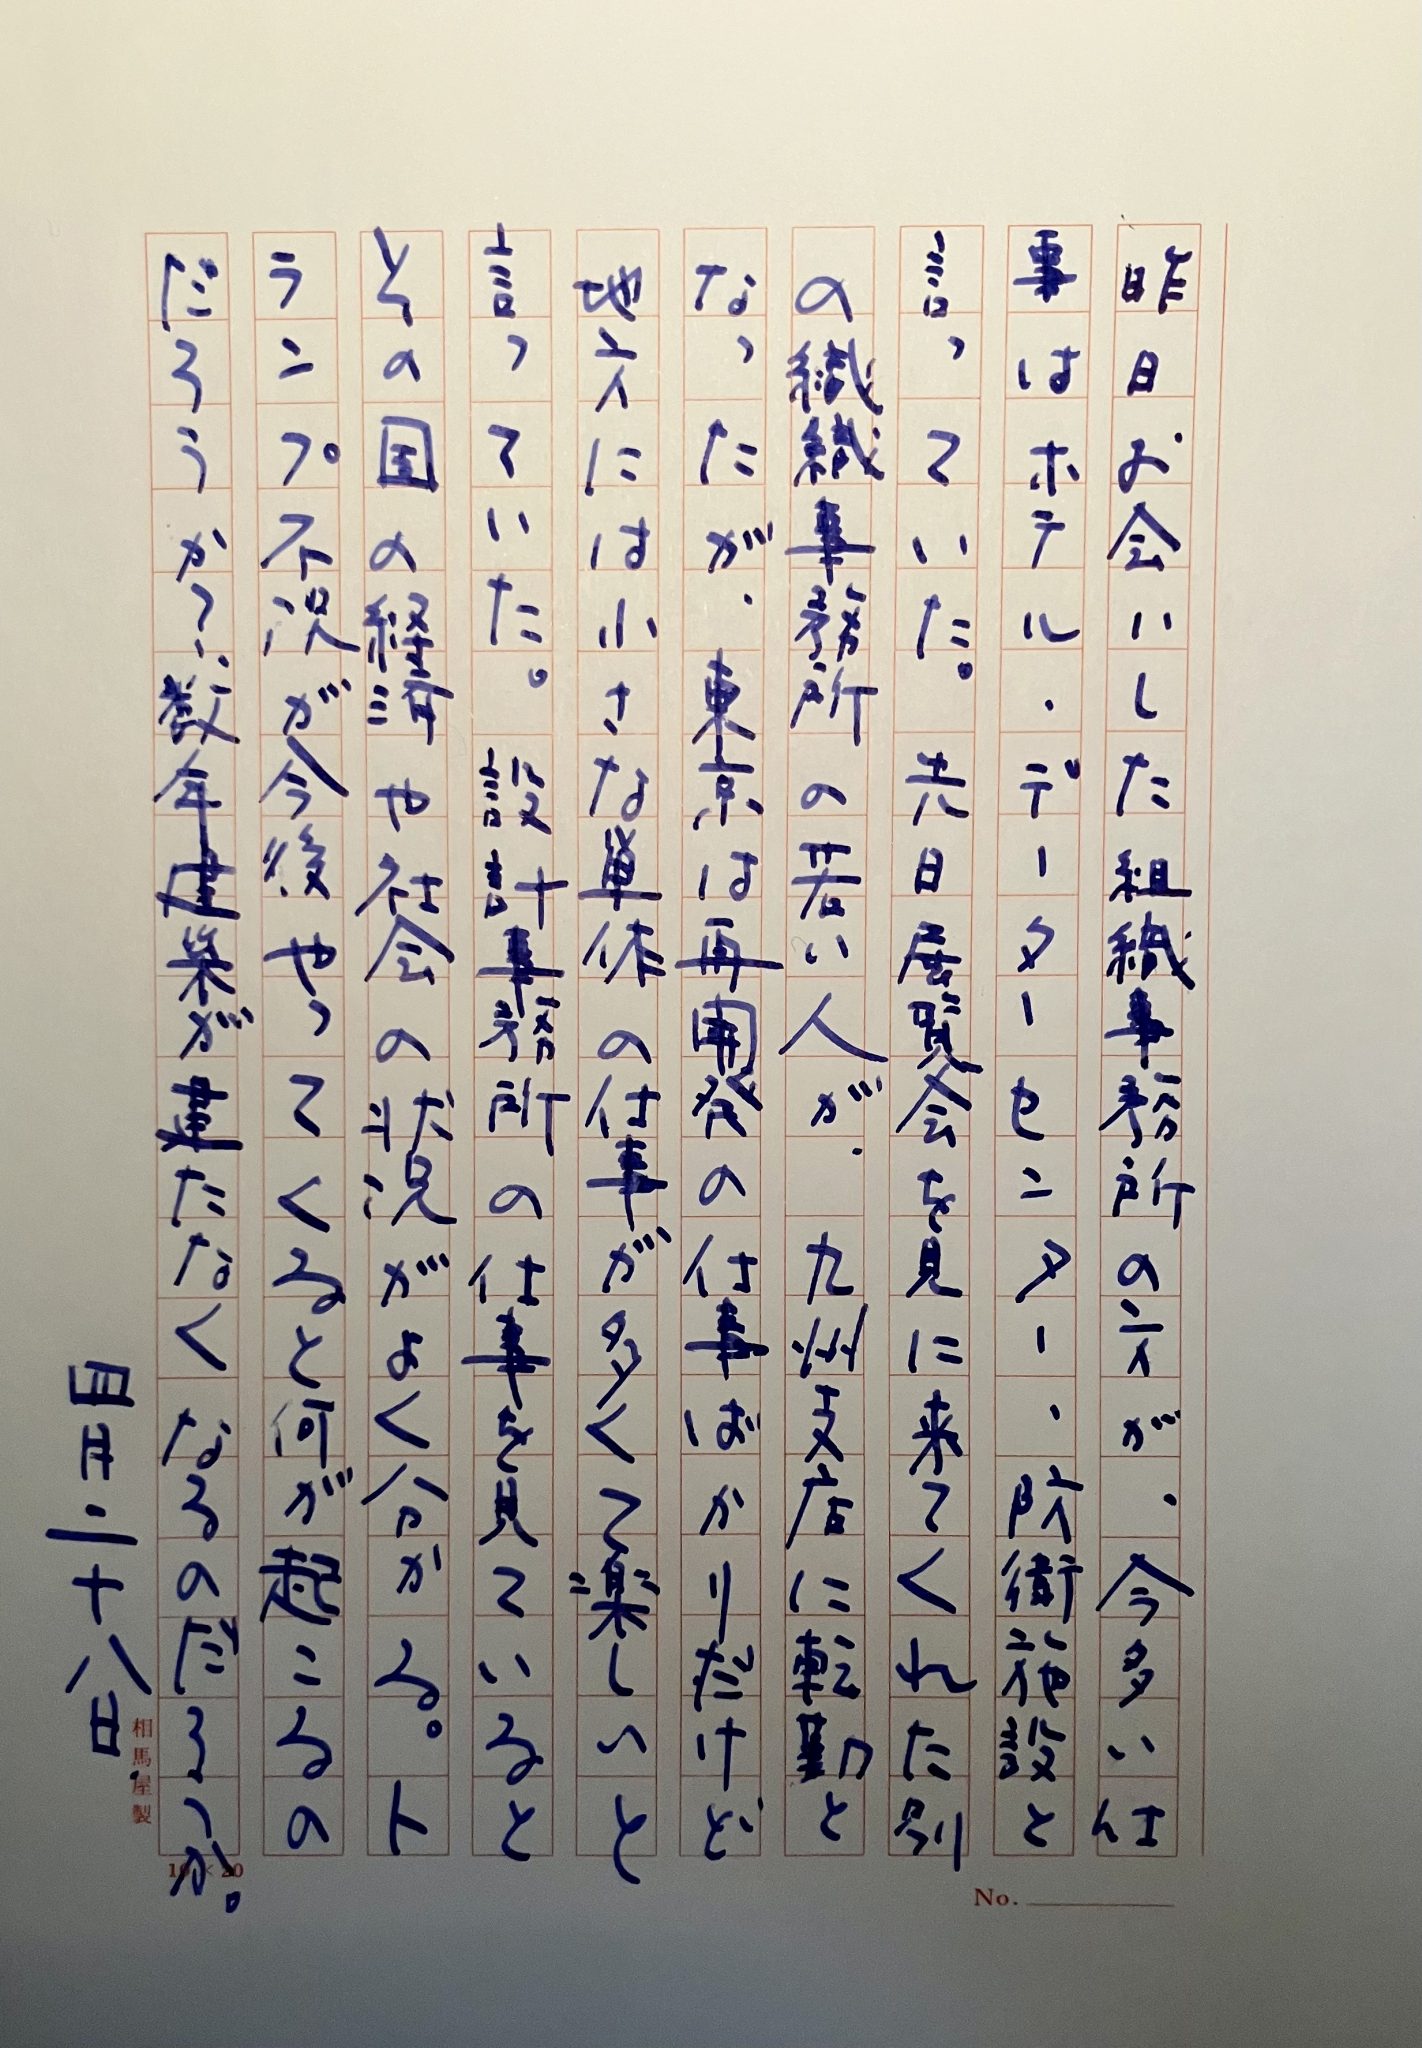 昨日お会いした組織事務所の方が、今多い仕
事はホテル・データーセンター、防衛施設と
言っていた。先日展覧会を見に来てくれた別
の織織事務所の若い人が、九州支店に転勤と
なったが、東京は再開発の仕事ばかりだけど
地方には小さな単体の仕事が多くて楽しいと
言っていた。設計事務所の仕事を見ていると
その国の経済や社会の状況がよく分かる。ト
ランプ不況が今後やってくると何が起こるの
だろうか?、数年建築が建たなくなるのだろうか。
四月二十八日
相馬屋製
10×20
No.